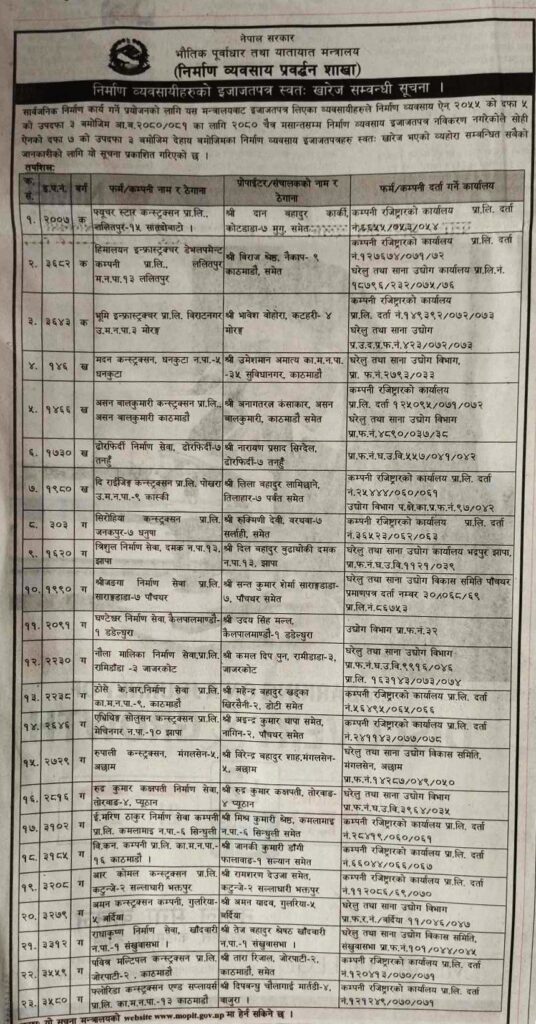 नेपाल सरकार
भौतिक पूर्वाधार तथा यातायात मन्त्रालय
(निर्माण व्यवसाय प्रवर्द्धन शाखा)
निर्माण व्यवसायीहरुको इजाजतपत्र स्वतः खारेज सम्बन्धी सूचना ।
सार्वजनिक निर्माण कार्य गर्ने प्रयोजनको लागि यस मन्त्रालयबाट इजाजतपत्र लिएका व्यवसायीहरुले निर्माण व्यवसाय ऐन् २०५५ को दफा ५
को उपदफा ३ बमोजिम आ.ब.२०८०/०८१ का लागि २०८० चैत्र मसान्तसम्म निर्माण व्यवसाय इजाजतपत्र नविकरण नगरेकोले सोही
ऐनको दफा ७ को उपदफा ३ बमोजिम देहाय बमोजिमका निर्माण व्यवसाय इजाजतपत्रहरु स्वतः खारेज भएको व्यहोरा सम्बन्धित सबैको
जानकारीको लागि यो सूचना प्रकाशित गरिएको छ ।
तपशिलः
क.सं. इ.प.नं. वर्ग फर्म/कम्पनी नाम र ठेगाना प्रोपाईटर/संचालकको नाम र ठेगाना फर्म/कम्पनी दर्ता गर्ने कार्यालय
१. २००७ क फ्यूचर स्टार कन्स्ट्रक्सन प्रा.लि., ललितपुर-१५ श्री दान बहादुर कार्की, कोटडाडा-७ मुगु, समेत कम्पनी रजिष्ट्रारको कार्यालय प्रा.लि. दर्ता
२. ३६८२ क हिमालयन इन्फ्रास्ट्रक्चर डेभलपमेन्ट कम्पनी प्रा.लि., ललितपुर म.न.पा.१३ ललितपुर श्री विराज श्रेष्ठ, नैकाप- ९ काठमाडौं, समेत कम्पनी रजिष्ट्रारको कार्यालय प्रा.लि. दर्ता नं.१२७६७४/०७१/७२ घरेलु तथा साना उद्योग कार्यालय प्रा.लि.नं. १८७९६/२३२/०७५/७६
३. ३६४३ क भूमि इन्फ्रास्ट्रक्चर प्रा.लि. विराटनगर उ.म.न.पा.३ मोरङ्ग श्री भावेश बोहोरा, कटहरी- ४ मोरङ्ग कम्पनी रजिष्ट्रारको कार्यालय प्रा.लि. दर्ता नं.१४९३९२/०७२/०७३ घरेलु तथा साना उद्योग प्र.उ.द.प्र.फ.नं.४२३/०७२/०७३
४. १४६ ख मदन कन्स्ट्रक्सन, धनकुटा न.पा.-५ धनकुटा श्री उमेशमान अमात्य का.म.न.पा. -३५ सुविधानगर, काठमाडौं घरेलु तथा साना उद्योग विभाग, प्रा. फ.नं.२७९३/०३३
५. १४६६ ख असन बालकुमारी कन्स्ट्रक्सन प्रा.लि., असन बालकुमारी काठमाडौं श्री अनागतरत्न कंसाकार, असन बालकुमारी, काठमाडौं समेत कम्पनी रजिष्ट्रारको कार्यालय प्रा.लि. दर्ता १२५०९५/०७१/०७२ घरेलु तथा साना उद्योग विभाग प्रा.फ.नं.४८९०/०३७/३८
६. १७३० ख ढोरफिर्दी निर्माण सेवा, ढोरफिर्दी-७ तनहुँ श्री नारायण प्रसाद सिग्देल, ढोरफिर्दी-७ तनहुँ प्रा.फ.नं.घ.उ.वि.५५७/०४१/०४२
७. १९८० ख दि राईजिङ्ग कन्स्ट्रक्सन प्रा.लि. पोखरा उ.म.न.पा.-९ कास्की श्री लिला बहादुर लामिछाने, तिलाहार-७ पर्वत समेत कम्पनी रजिष्ट्रारको कार्यालय प्रा.लि. दर्ता नं.२५४४४/०६०/०६१ उद्योग विभाग प.क्षे.का.प्रा.फ.नं.९७/०४२
८. ३०३ ग सिरोहिया कन्स्ट्रक्सन प्रा.लि. जनकपुर-७ धनुषा श्री रुक्मिणी देवी, बरथवा-७ सर्लाही, समेत कम्पनी रजिष्ट्रारको कार्यालय प्रा.लि. दर्ता नं.३६५२३/०६२/०६३
९. १६२० ग त्रिशुल निर्माण सेवा, दमक न.पा.१३, झापा श्री दिल बहादुर बुढाथोकी दमक न.पा.१३, झापा घरेलु तथा साना उद्योग कार्यालय भद्रपुर झापा, प्रा.फ.नं.घ.उ.वि.११२१/०३९
१०. १९९० ग श्रीजङगा निर्माण सेवा प्रा.लि. साराङडाडा-७ पाँचथर श्री सन्त कुमार शेर्मा साराङडाडा-७, पाँचथर समेत घरेलु तथा साना उद्योग विकास समिति पाँचथर प्रमाणपत्र दर्ता नम्बर ३०/०६८/६९ प्रा.लि.नं.८६७५३
११. २०९१ ग घण्टेश्वर निर्माण सेवा, कैलपालमाण्डौ-१ डडेल्धुरा श्री उदय सिंह मल्ल, कैलपालमाण्डौ-१ डडेल्धुरा उद्योग विभाग प्रा.फ.नं.३२
१२. २२३० ग नौला मालिका निर्माण सेवा,प्रा.लि. रामिडाँडा -३ जाजरकोट श्री कमल दिप पुन, रामीडाडा-३, जाजरकोट घरेलु तथा साना उद्योग विभाग प्रा.फ.नं.घ.उ.वि.९९१६/०४६ प्रा.लि. १६३१४३/०७३/०७४
१३. २२३८ ग ठोसे के.आर.निर्माण सेवा प्रा.लि. का.म.न.पा.-९, काठमाडौं श्री महेन्द्र बहादुर खड्का खिरसैनी-२, डोटी समेत कम्पनी रजिष्ट्रारको कार्यालय प्रा.लि. दर्ता नं.५६४९५/०६५/०६६
१४. २६४६ ग सोलुसन कन्स्ट्रक्सन प्रा.लि. मेचिनगर न.पा.-१० झापा श्री थापा समेत, नागिन-२, पाँचथर समेत कम्पनी रजिष्ट्रारको कार्यालय प्रा.लि. दर्ता नं.२४११४३/०७७/०७८
१५. २७२९ ग रुपाली कन्स्ट्रक्सन, मंगलसेन-५, अछाम श्री विरेन्द्र बहादुर शाह,मंगलसेन-५, अछाम घरेलु तथा साना उद्योग विकास समिति, मंगलसेन, अछाम प्रा.फ.नं.१४२८७/०४९/०५०
१६. २८१६ ग रुद्र कुमार कक्षपती निर्माण सेवा, तोरवाङ-४, प्यूठान श्री रुद्र कुमार कक्षपती, तोरवाङ-४ प्यूठान घरेलु तथा साना उद्योग विभाग, प्रा.फ.नं.घ.उ.वि.३९६४/०३५
१७. ३१०२ ग ई.मरिण ठाकुर निर्माण सेवा कम्पनी प्रा.लि. कमलामाइ न.पा.-६ सिन्धुली श्री मिश्र कुमारी श्रेष्ठ, कमलामाइ न.पा.-६ सिन्धुली समेत कम्पनी रजिष्ट्रारको कार्यालय प्रा.लि. दर्ता नं.२८४१९/०६०/०६१
१८. ३१८५ ग वि.कन. कम्पनी प्रा.लि. का.म.न.पा.-१६ काठमाडौं । श्री जानकी कुमारी डाँगी फालावाङ-१ सल्यान समेत कम्पनी रजिष्ट्रारको कार्यालय प्रा.लि. दर्ता नं.६६०४४/०६६/०६७
१९. ३२०८ ग आर कोमल कन्स्ट्रक्सन प्रा.लि. कटुन्जे-२ सल्लाघारी भक्तपुर श्री रामशरण देउजा समेत, कटुन्जे-२ सल्लाघारी भक्तपुर कम्पनी रजिष्ट्रारको कार्यालय प्रा.लि. दर्ता नं.११२०८६/६९/०७०
२०. ३२७९ ग अमन कन्स्ट्रक्सन कम्पनी, गुलरिया-५ बर्दिया श्री अमन यादव, गुलरिया-५ बर्दिया घरेलु तथा साना उद्योग विभाग प्रा.फ.र.नं./बर्दिया ११/०४६/०४७
२१. ३३१२ ग राधाकृष्ण निर्माण सेवा, खाँदवारी न.पा.-१ संखुवासभा । श्री तेज बहादुर श्रेष्ठ खाँदवारी न.पा.-१ संखुवासभा । घरेलु तथा साना उद्योग विकास समिति, संखुवासभा प्रा.फ.नं.१०१/०४४/०४५
२२. ३५५९ ग पवित्र मल्टिपल कन्स्ट्रक्सन प्रा.लि. जोरपाटी-२, काठमाडौं श्री तारा रिजाल, जोरपाटी-२, काठमाडौं समेत कम्पनी रजिष्ट्रारको कार्यालय प्रा.लि. दर्ता नं.१२०४१३/०७०/०७१
२३. ३५८० ग फ्लोरिडा कन्स्ट्रक्सन एण्ड सप्लायर्स प्रा.लि. का.म.न.पा.-१३ काठमाडौं श्री दिपबन्धु चौलागाई मार्तडी-४, बाजुरा । कम्पनी रजिष्ट्रारको कार्यालय प्रा.लि. दर्ता नं.१२१२४९/०७०/०७१
यो सूचना मन्त्रालयको website www.mopit.gov.np मा हेर्न सकिने छ ।